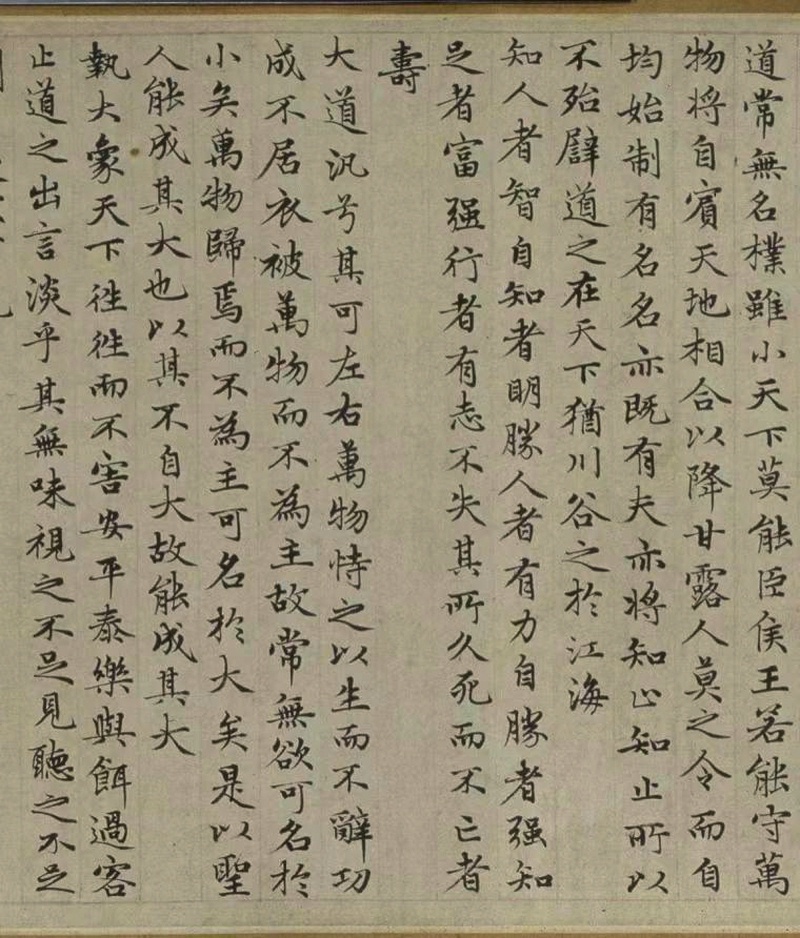 道常無名樸雖小天下莫能臣侯王若能守萬
物將自賓天地相合以降甘露人莫之令而自
均始制有名名亦既有夫亦將知止知止所以
不殆譬道之在天下猶川谷之於江海
知人者智自知者明勝人者有力自勝者强知
足者富强行者有志不失其所久死而不亡者
壽
大道汎兮其可左右萬物恃之以生而不辭功
成不居衣被萬物而不為主故常無欲可名於
小矣萬物歸焉而不為主可名於大矣是以聖
人能成其大也以其不自大故能成其大
執大象天下往往而不害安平泰樂與餌過客
止道之出言淡乎其無味視之不足見聽之不足